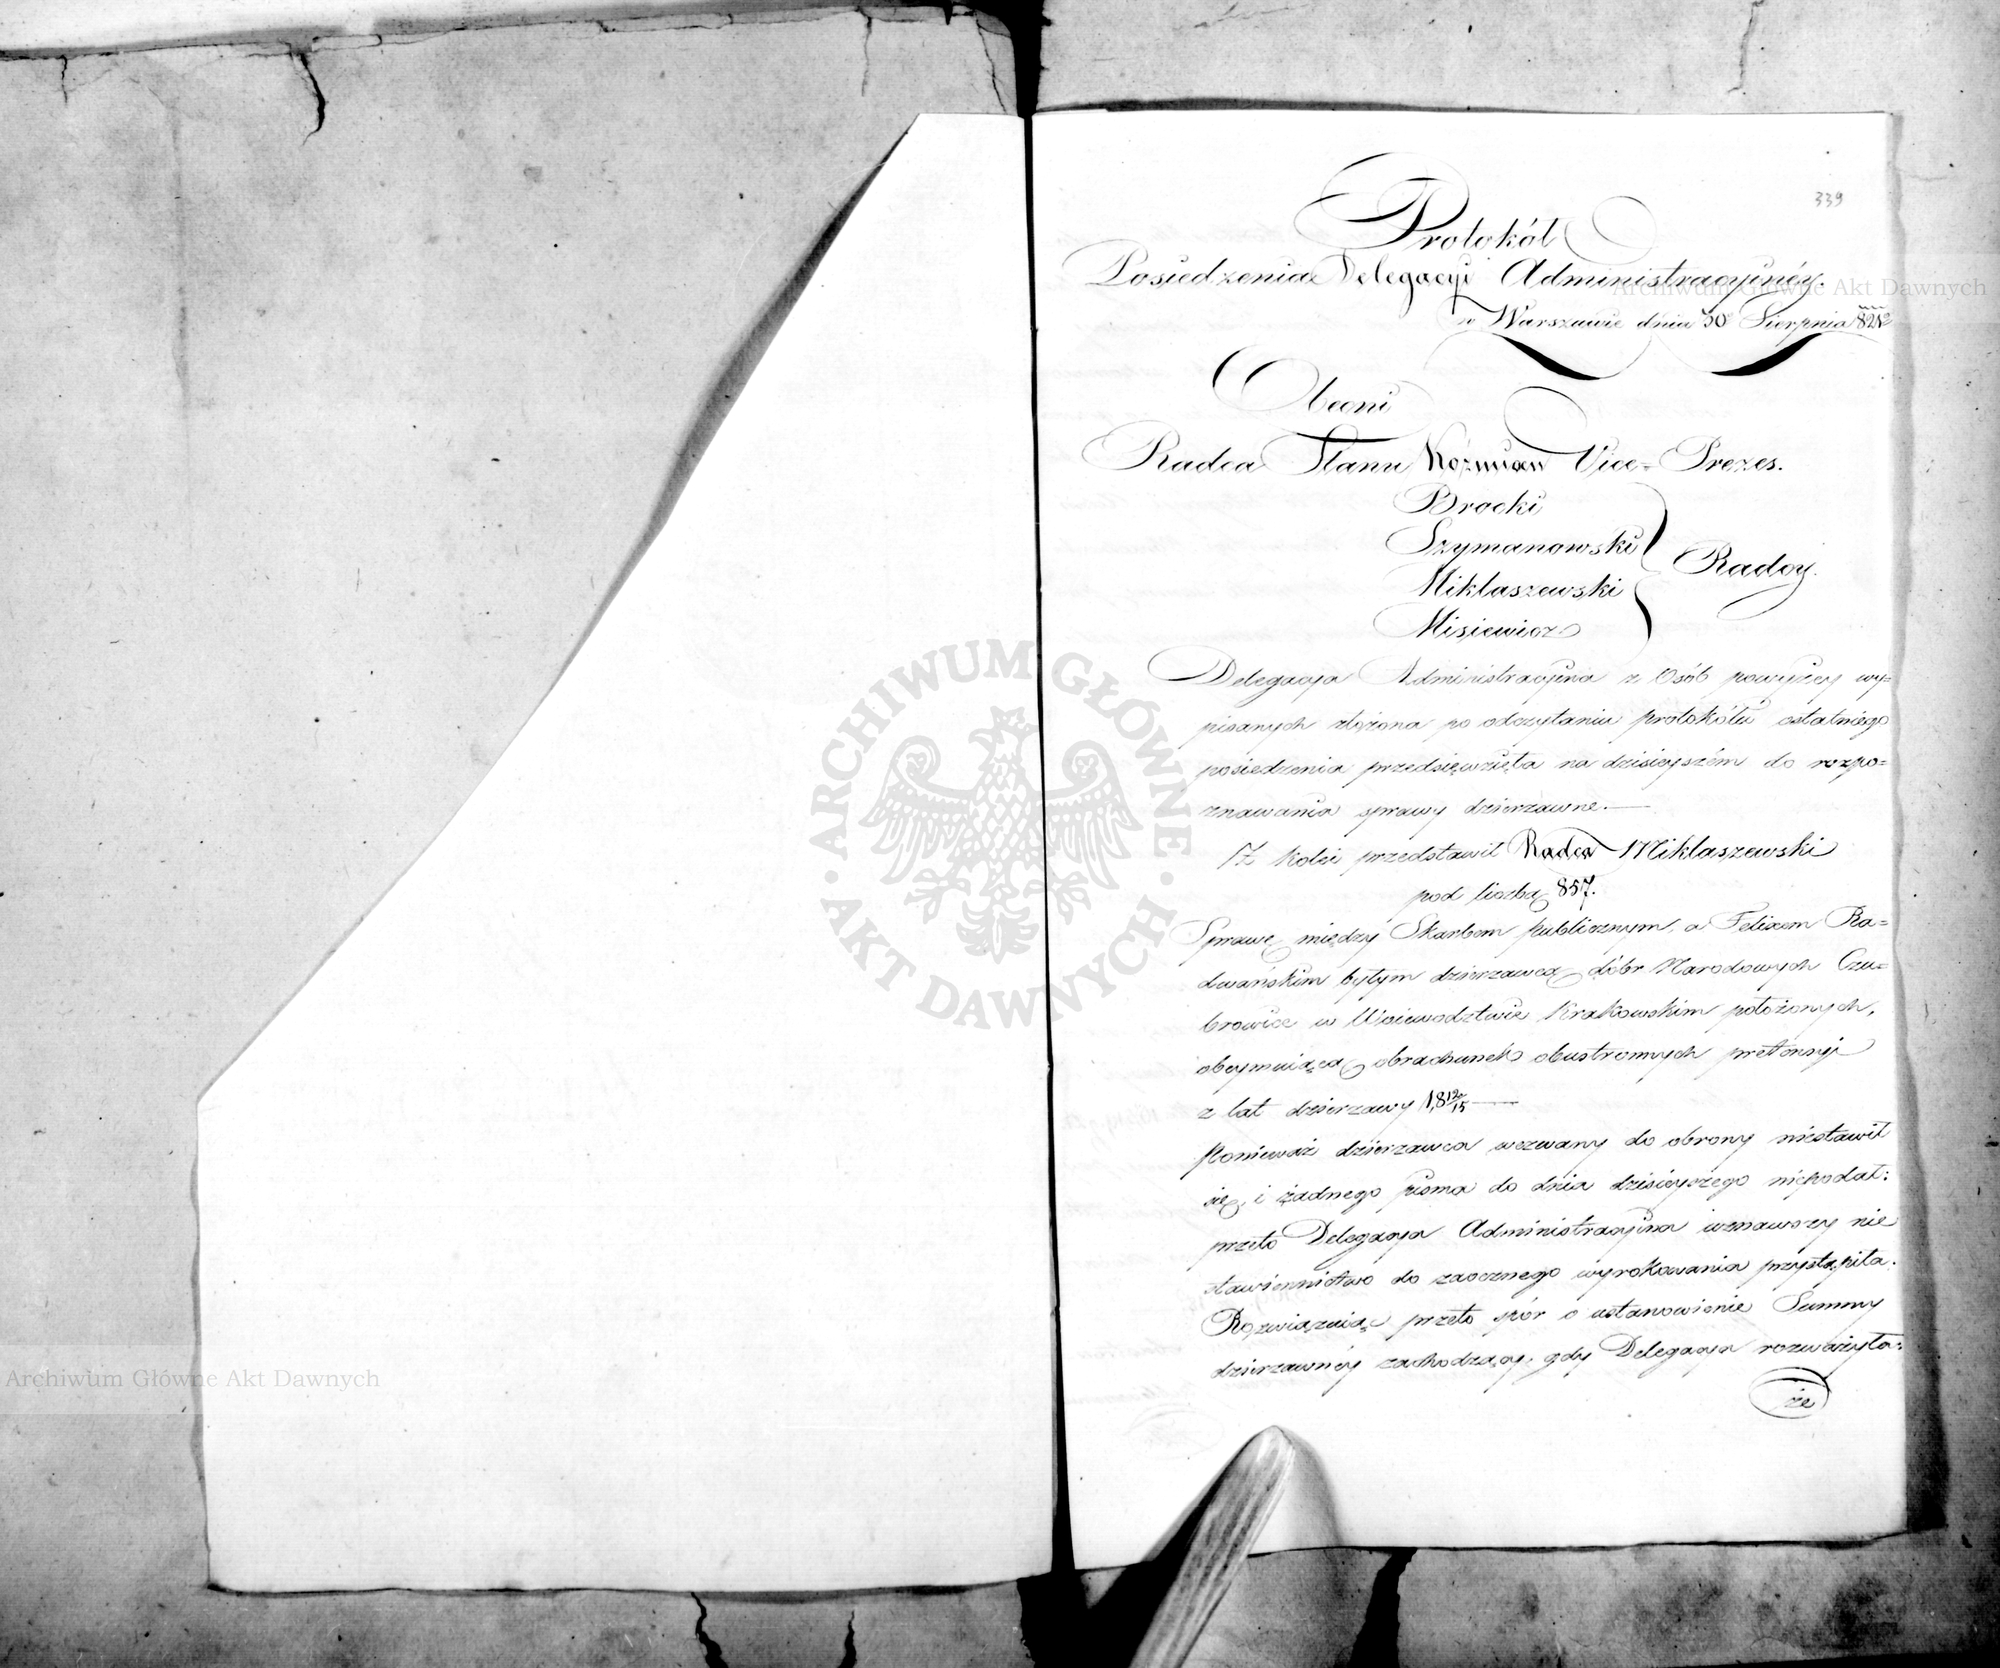 339
Protokół
Posiedzenia Delegacyi Administracyinéy.
w Warszawie dnia 30 Sierpnia
Obecni
Radca Stanu Koźmian Vice-Prezes.
Brocki
Szymanowski
Miklaszewski
Misiewicz
Radcy.
Delegacya Administracyina z Osób powyżey wy=
pisanych złożona po odczytaniu protokółu ostatniego
posiedzenia przedsięwzięła na dzisieyszém do rozpo=
znawania sprawy dzierzawne.—
Z kolei przedstawił Radca Miklaszewski
pod liczbą 857.
Sprawę między Skarbem publicznym, a Felixem Ra=
dwańskim byłym dzierzawcą dóbr Narodowych Czu=
browice w Woiewodztwie Krakowskim położonych,
obeymuiącą obrachunek obustronnych pretensyi
z lat dzierzawy 1812/15 —
Ponieważ dzierzawca wezwany do obrony niestawił
się, i żadnego pisma do dnia dzisieyszego niepodał:
przeto Delegacya Administracyina uznawszy nie
stawiennictwo do zaocznego wyrokowania przystąpiła.
Rozwiązuiąc przeto spór o ustanowienie Summy
dzierzawnéy zachodzący, gdy Delegacya rozważyła:
że
ARCHIWUM GŁÓWNE
AKT DAWNYCH
Archiwum Główne Akt Dawnych
Archiwum Główne Akt Dawnych